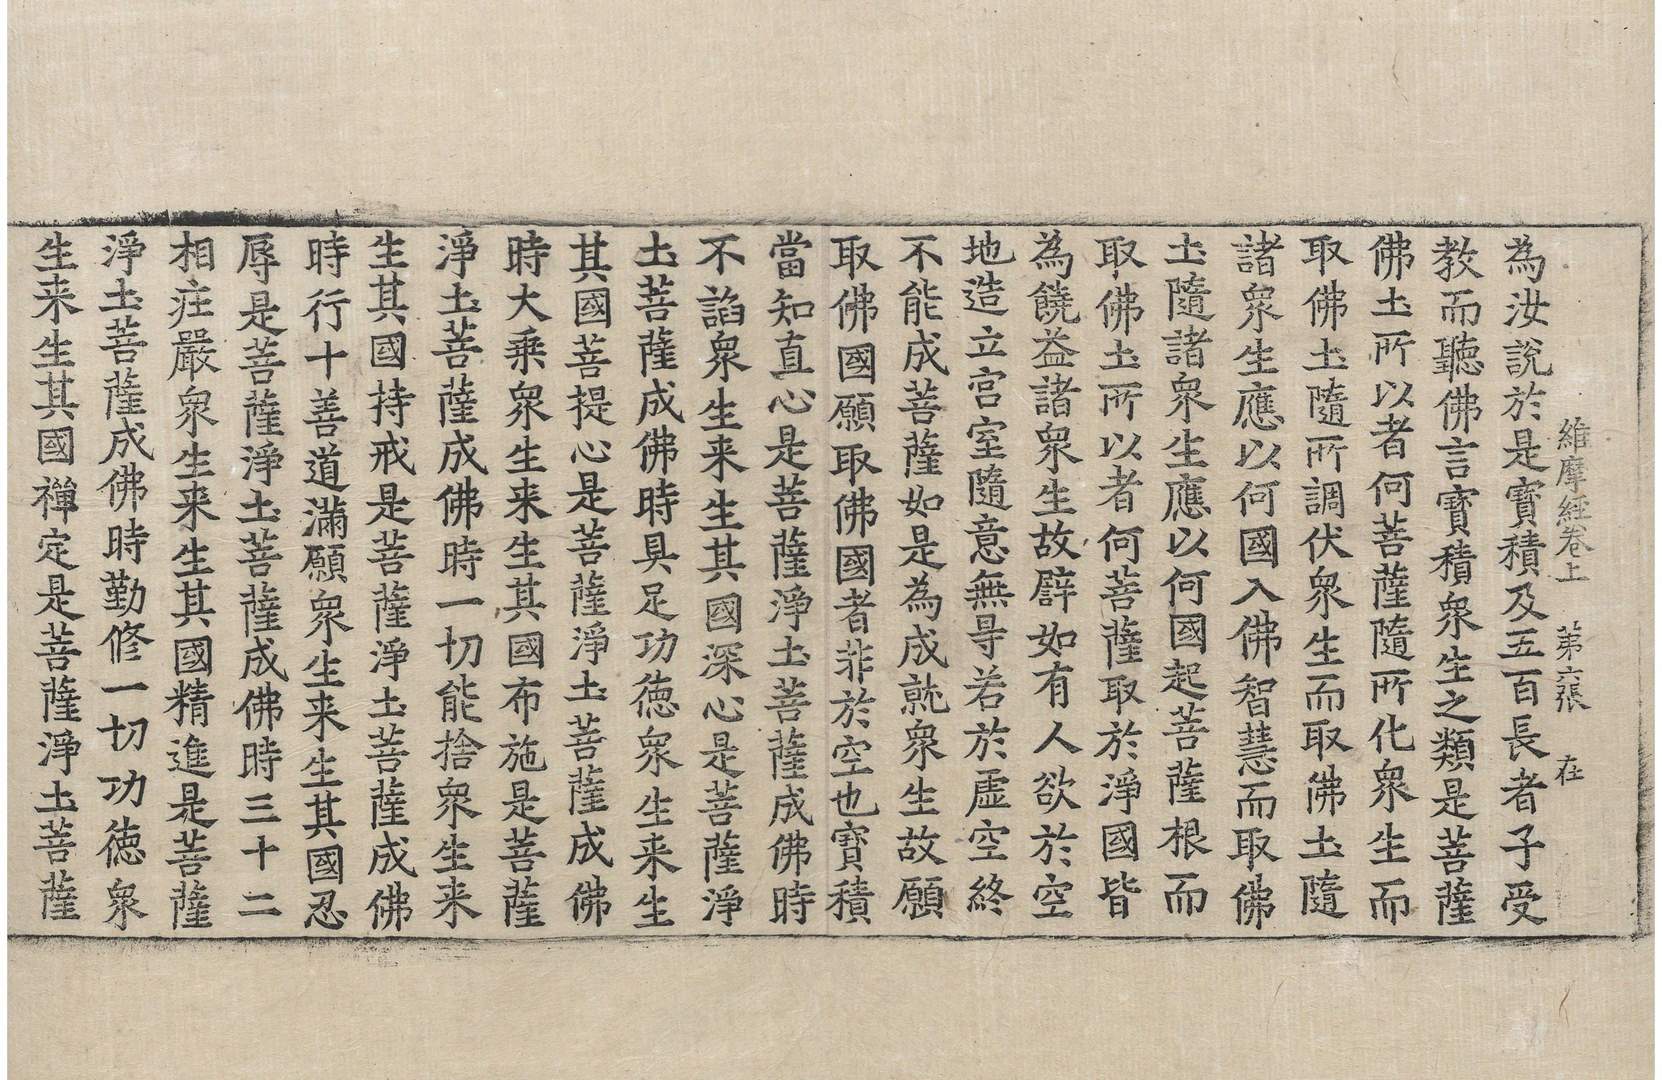 維摩經卷上　第六張　在
為汝說於是寳積及五百長者子受
教而聽佛言寳積衆生之類是菩薩
佛土所以者何菩薩隨所化衆生而
取佛土隨所調伏衆生而取佛土隨
諸衆生應以何國入佛智慧而取佛
土隨諸衆生應以何國起菩薩根而
取佛土所以者何菩薩取於淨國皆
為饒益諸衆生故譬如有人欲於空
地造立宮室隨意無㝵若於虛空終
不能成菩薩如是為成就衆生故願
取佛國願取佛國者非於空也寳積
當知直心是菩薩淨土菩薩成佛時
不諂衆生来生其國深心是菩薩淨
土菩薩成佛時具足功德衆生来生
其國菩提心是菩薩淨土菩薩成佛
時大乘衆生来生其國布施是菩薩
淨土菩薩成佛時一切能捨衆生来
生其國持戒是菩薩淨土菩薩成佛
時行十善道滿願衆生来生其國忍
辱是菩薩淨土菩薩成佛時三十二
相莊嚴衆生来生其國精進是菩薩
淨土菩薩成佛時勤修一切功德衆
生来生其國禪定是菩薩淨土菩薩